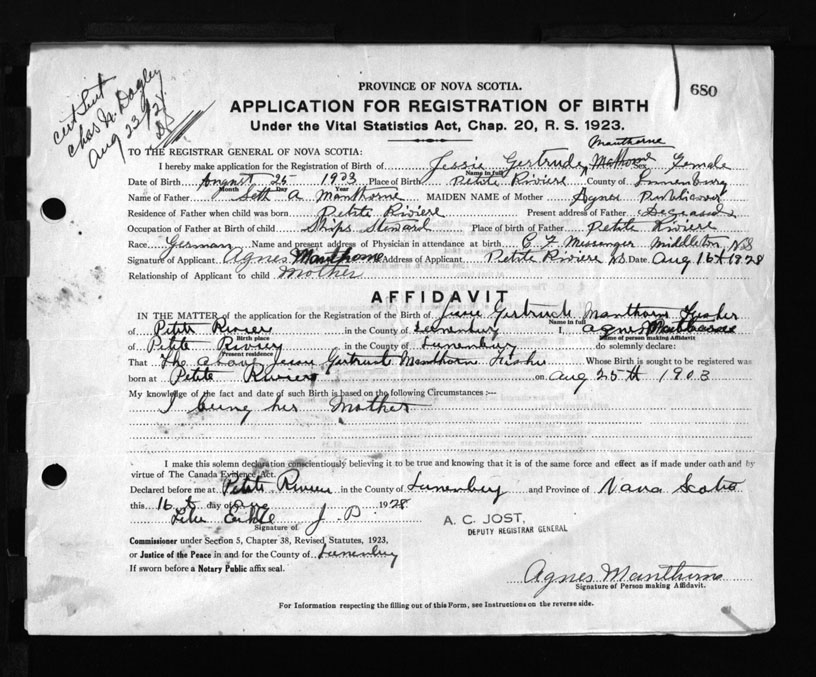 cert Sent
Chas H. Dagley
Aug 23/28
680
PROVINCE OF NOVA SCOTIA.
APPLICATION FOR REGISTRATION OF BIRTH
Under the Vital Statistics Act, Chap. 20, R. S. 1923.
TO THE REGISTRAR GENERAL OF NOVA SCOTIA:
Manthorne
I hereby make application for the Registration of Birth of Jessie Gertrude Sex Female
Name in full
Date of Birth August 25 1903 Place of Birth Petite Riviere County of Lunenburg
Month Day Year
Name of Father Seth A Manthorne MAIDEN NAME of Mother Agnes
Residence of Father when child was born Petite Riviere Present address of Father
Occupation of Father at Birth of child Ships Steward Place of birth of Father Petite Riviere
Race German Name and present address of Physician in attendance at birth C F Messenger Middleton NS
Signature of Applicant Agnes Manthorne Address of Applicant Petite Riviere NS Date Aug 16th 1928
Relationship of Applicant to child Mother
AFFIDAVIT
IN THE MATTER of the application for the Registration of the Birth of Jessie Gertrude Manthorne
Name in full
of Petite Riviere in the County of Lunenburg I, Agnes Manthorne
Birth place Name of person making Affidavit
of Petite Riviere in the County of Lunenburg do solemnly declare:
Present residence
That The above Jessie Gertrude Manthorne Whose Birth is sought to be registered was
born at Petite Riviere on Aug 25th 1903
My knowledge of the fact and date of such Birth is based on the following Circumstances :—
I being her Mother
I make this solemn declaration conscientiously believing it to be true and knowing that it is of the same force and effect as if made under oath and by
virtue of The Canada Evidence Act.
Declared before me at Petite Riviere in the County of Lunenburg and Province of Nova Scotia
this 16th day of Aug 1928
J. P.
Signature of
A. C. JOST,
DEPUTY REGISTRAR GENERAL
Commissioner under Section 5, Chapter 38, Revised Statutes, 1923,
or Justice of the Peace in and for the County of Lunenburg
If sworn before a Notary Public affix seal.
Agnes Manthorne
Signature of Person making Affidavit.
For Information respecting the filling out of this Form, see Instructions on the reverse side.